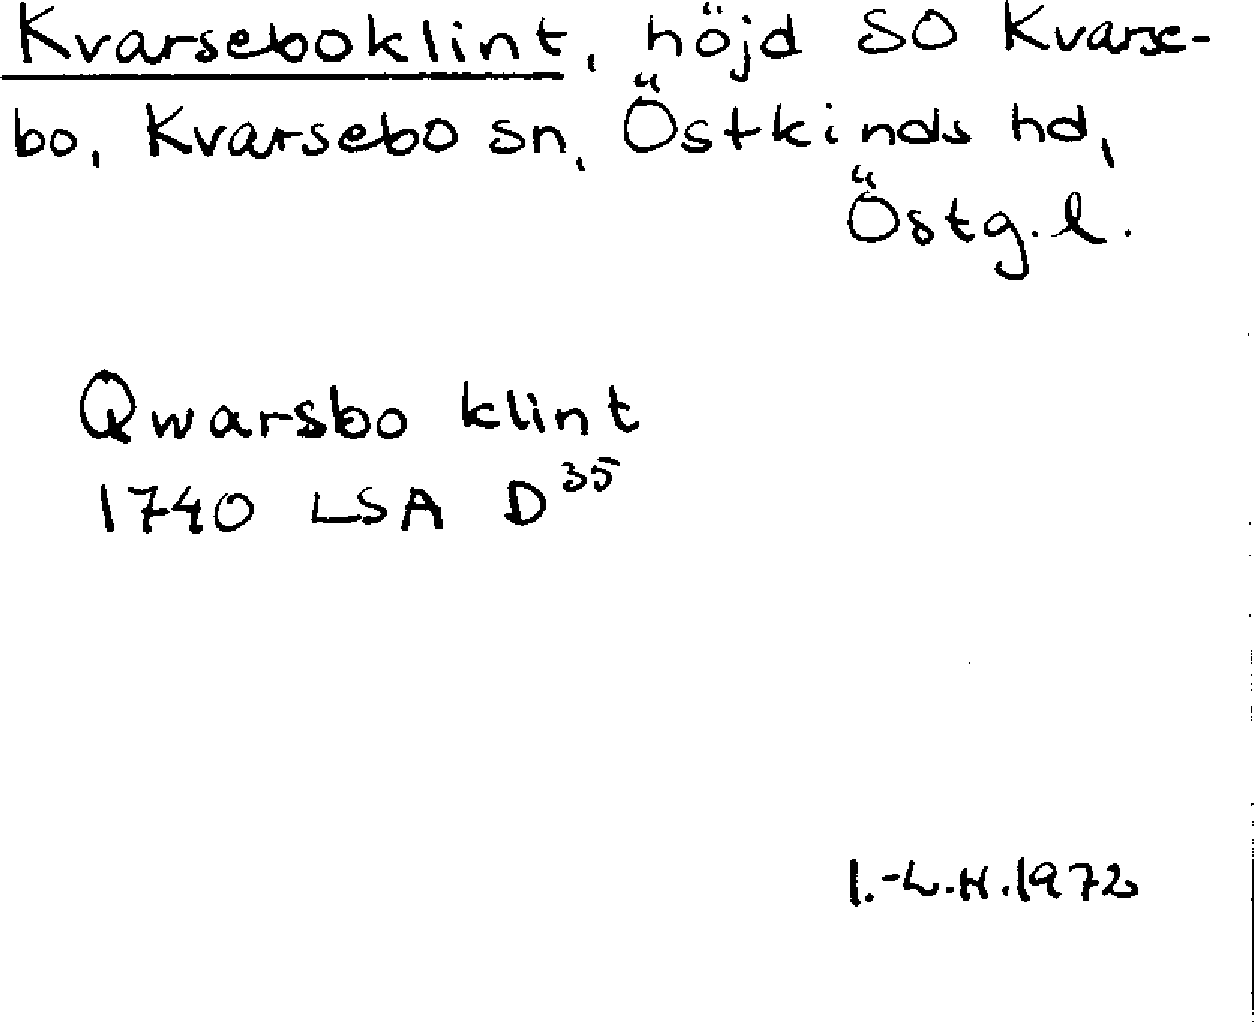 Kvarseboklint, höjd SO Kvarse-
bo, Kvarsebo sn, Östkinds hd,
Östg. l.
Qwarsbo klint
1740 LSA D³⁵
I.-L.H.1972